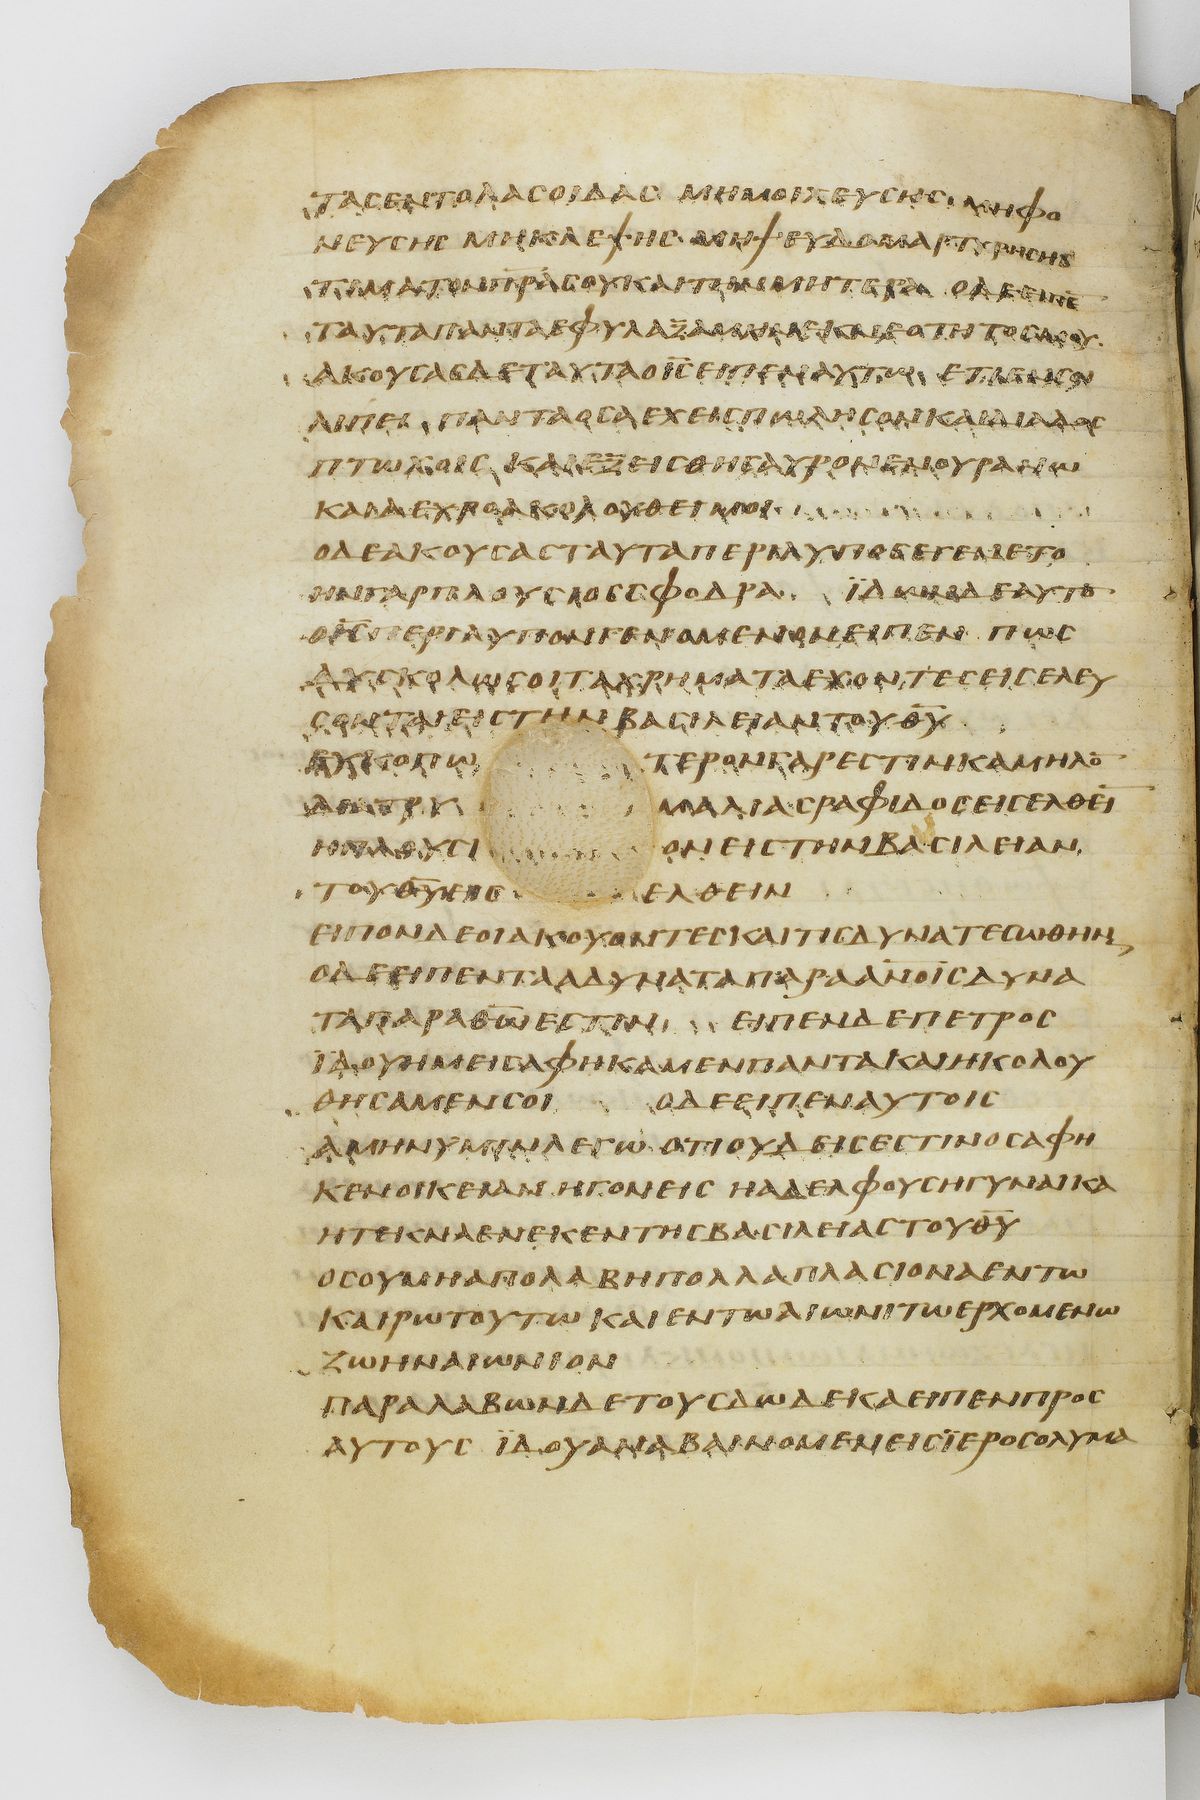 ταςεντολαςοιδας μημοιχευςης μηφο
νευςης μηκλεψης μηψευδομαρτυρηςης
τιματονπρ̅αςουκαιτηνμητερα οδεειπε̅
ταυταπανταεφυλαξαμηνεκνεοτητοςμου
ακουςαςδεταυταοις̅ειπεναυτω ετιενςοι
λιπει πανταοςαεχειςπωληςονκαιδιαδος
πτωχοις καιεξειςθηςαυρονενουρανω
καιδευροακολουθειμοι
οδεακουςαςταυταπεριλυποςεγενετο
ηνγαρπλουςιοςςφοδρα ϊδωνδεαυτο
οις̅περιλυπονγενομενονειπεν πως
δυςκολωςοιταχρηματαεχοντεςειςελευ
ςονταιειςτηνβαςιλειαντουθυ̅
ευκοπω τερονγαρεςτινκαμηλο̅
διατρυ μαλιαςραφιδοςειςελθει̅
ηπλουςι ονειςτηνβαςιλειαν
τουθυ̅εις ελθειν
ειπονδεοιακουοντεςκαιτιςδυνατεςωθηναι
οδεειπεντααδυναταπαραανοις̅δυνα
ταπαραθω̅εςτιν ειπενδεπετρος
ϊδουημειςαφηκαμενπαντακαιηκολου
θηςαμενςοι οδεειπεναυτοις
αμηνυμινλεγω οτιουδειςεςτινοςαφη
κενοικειαν ηγονεις ηαδελφουςηγυναικα
ητεκναενεκεντηςβαςιλειαςτουθυ̅
οςουμηαπολαβηπολλαπλαςιοναεντω
καιρωτουτω καιεντωαιωνιτωερχομενω
ζωηναιωνιον
παραλαβωνδετουςδωδεκαειπενπρος
αυτους ϊδουαναβαινομενειςϊεροςολυμα